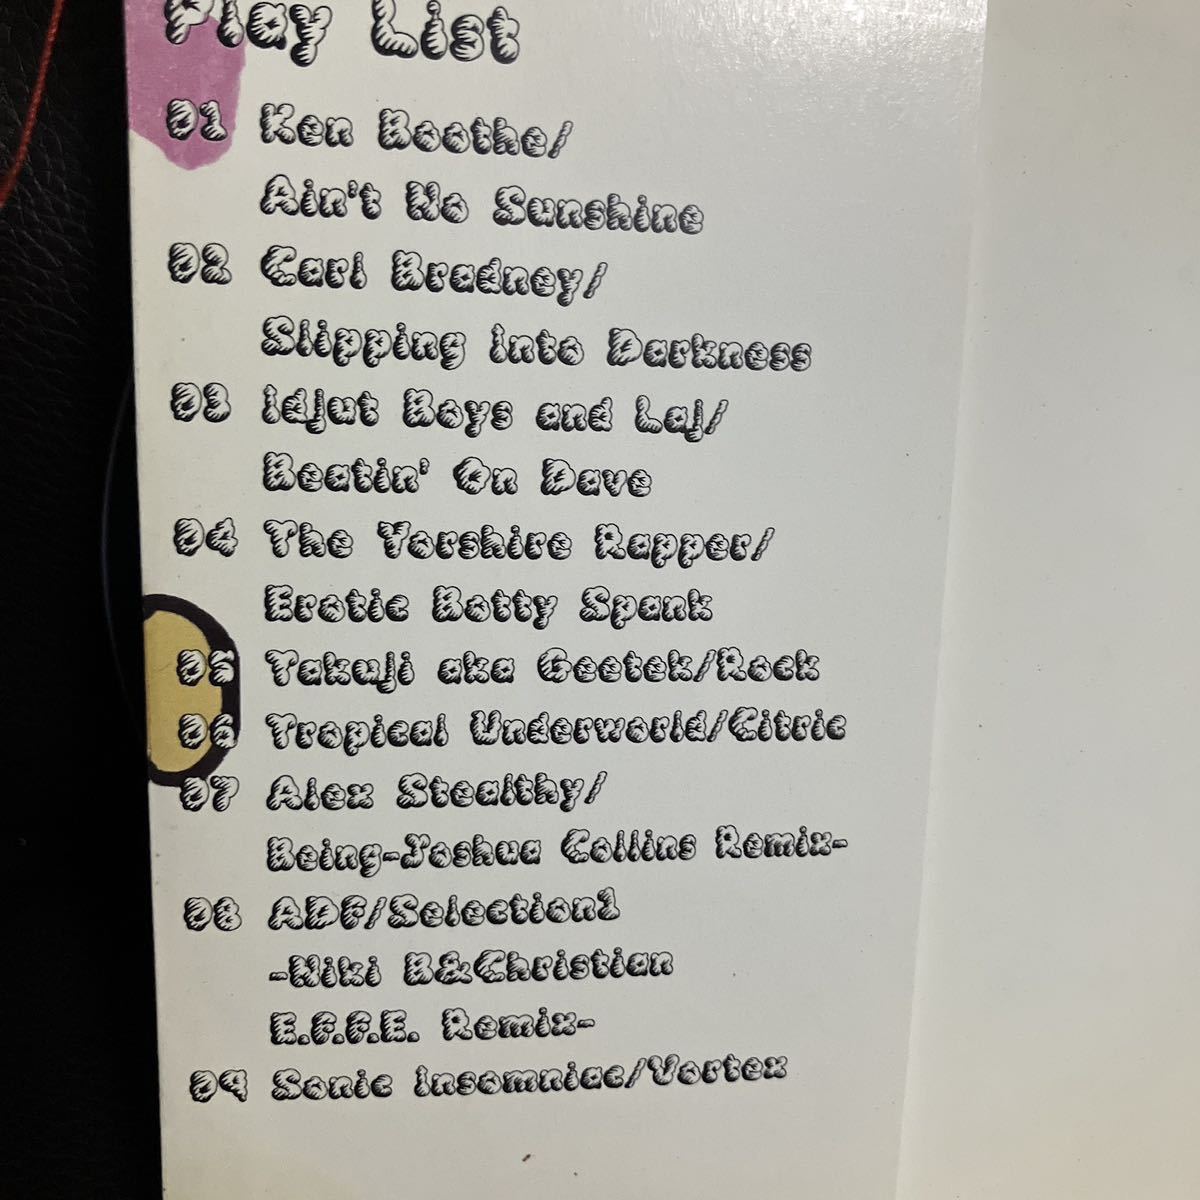 Play List
01 Ken Boothe/
Ain't No Sunshine
02 Carl Bradney/
Slipping Into Darkness
03 Idjut Boys and Laj/
Beatin' On Dave
04 The Yorshire Rapper/
Erotic Botty Spank
05 Takuji aka Geetek/Rock
06 Tropical Underworld/Citric
07 Alex Stealthy/
Being-Joshua Collins Remix-
08 ADF/Selection1
-Niki B&Christian
E.F.F.E. Remix-
09 Sonic Insomniac/Vortex